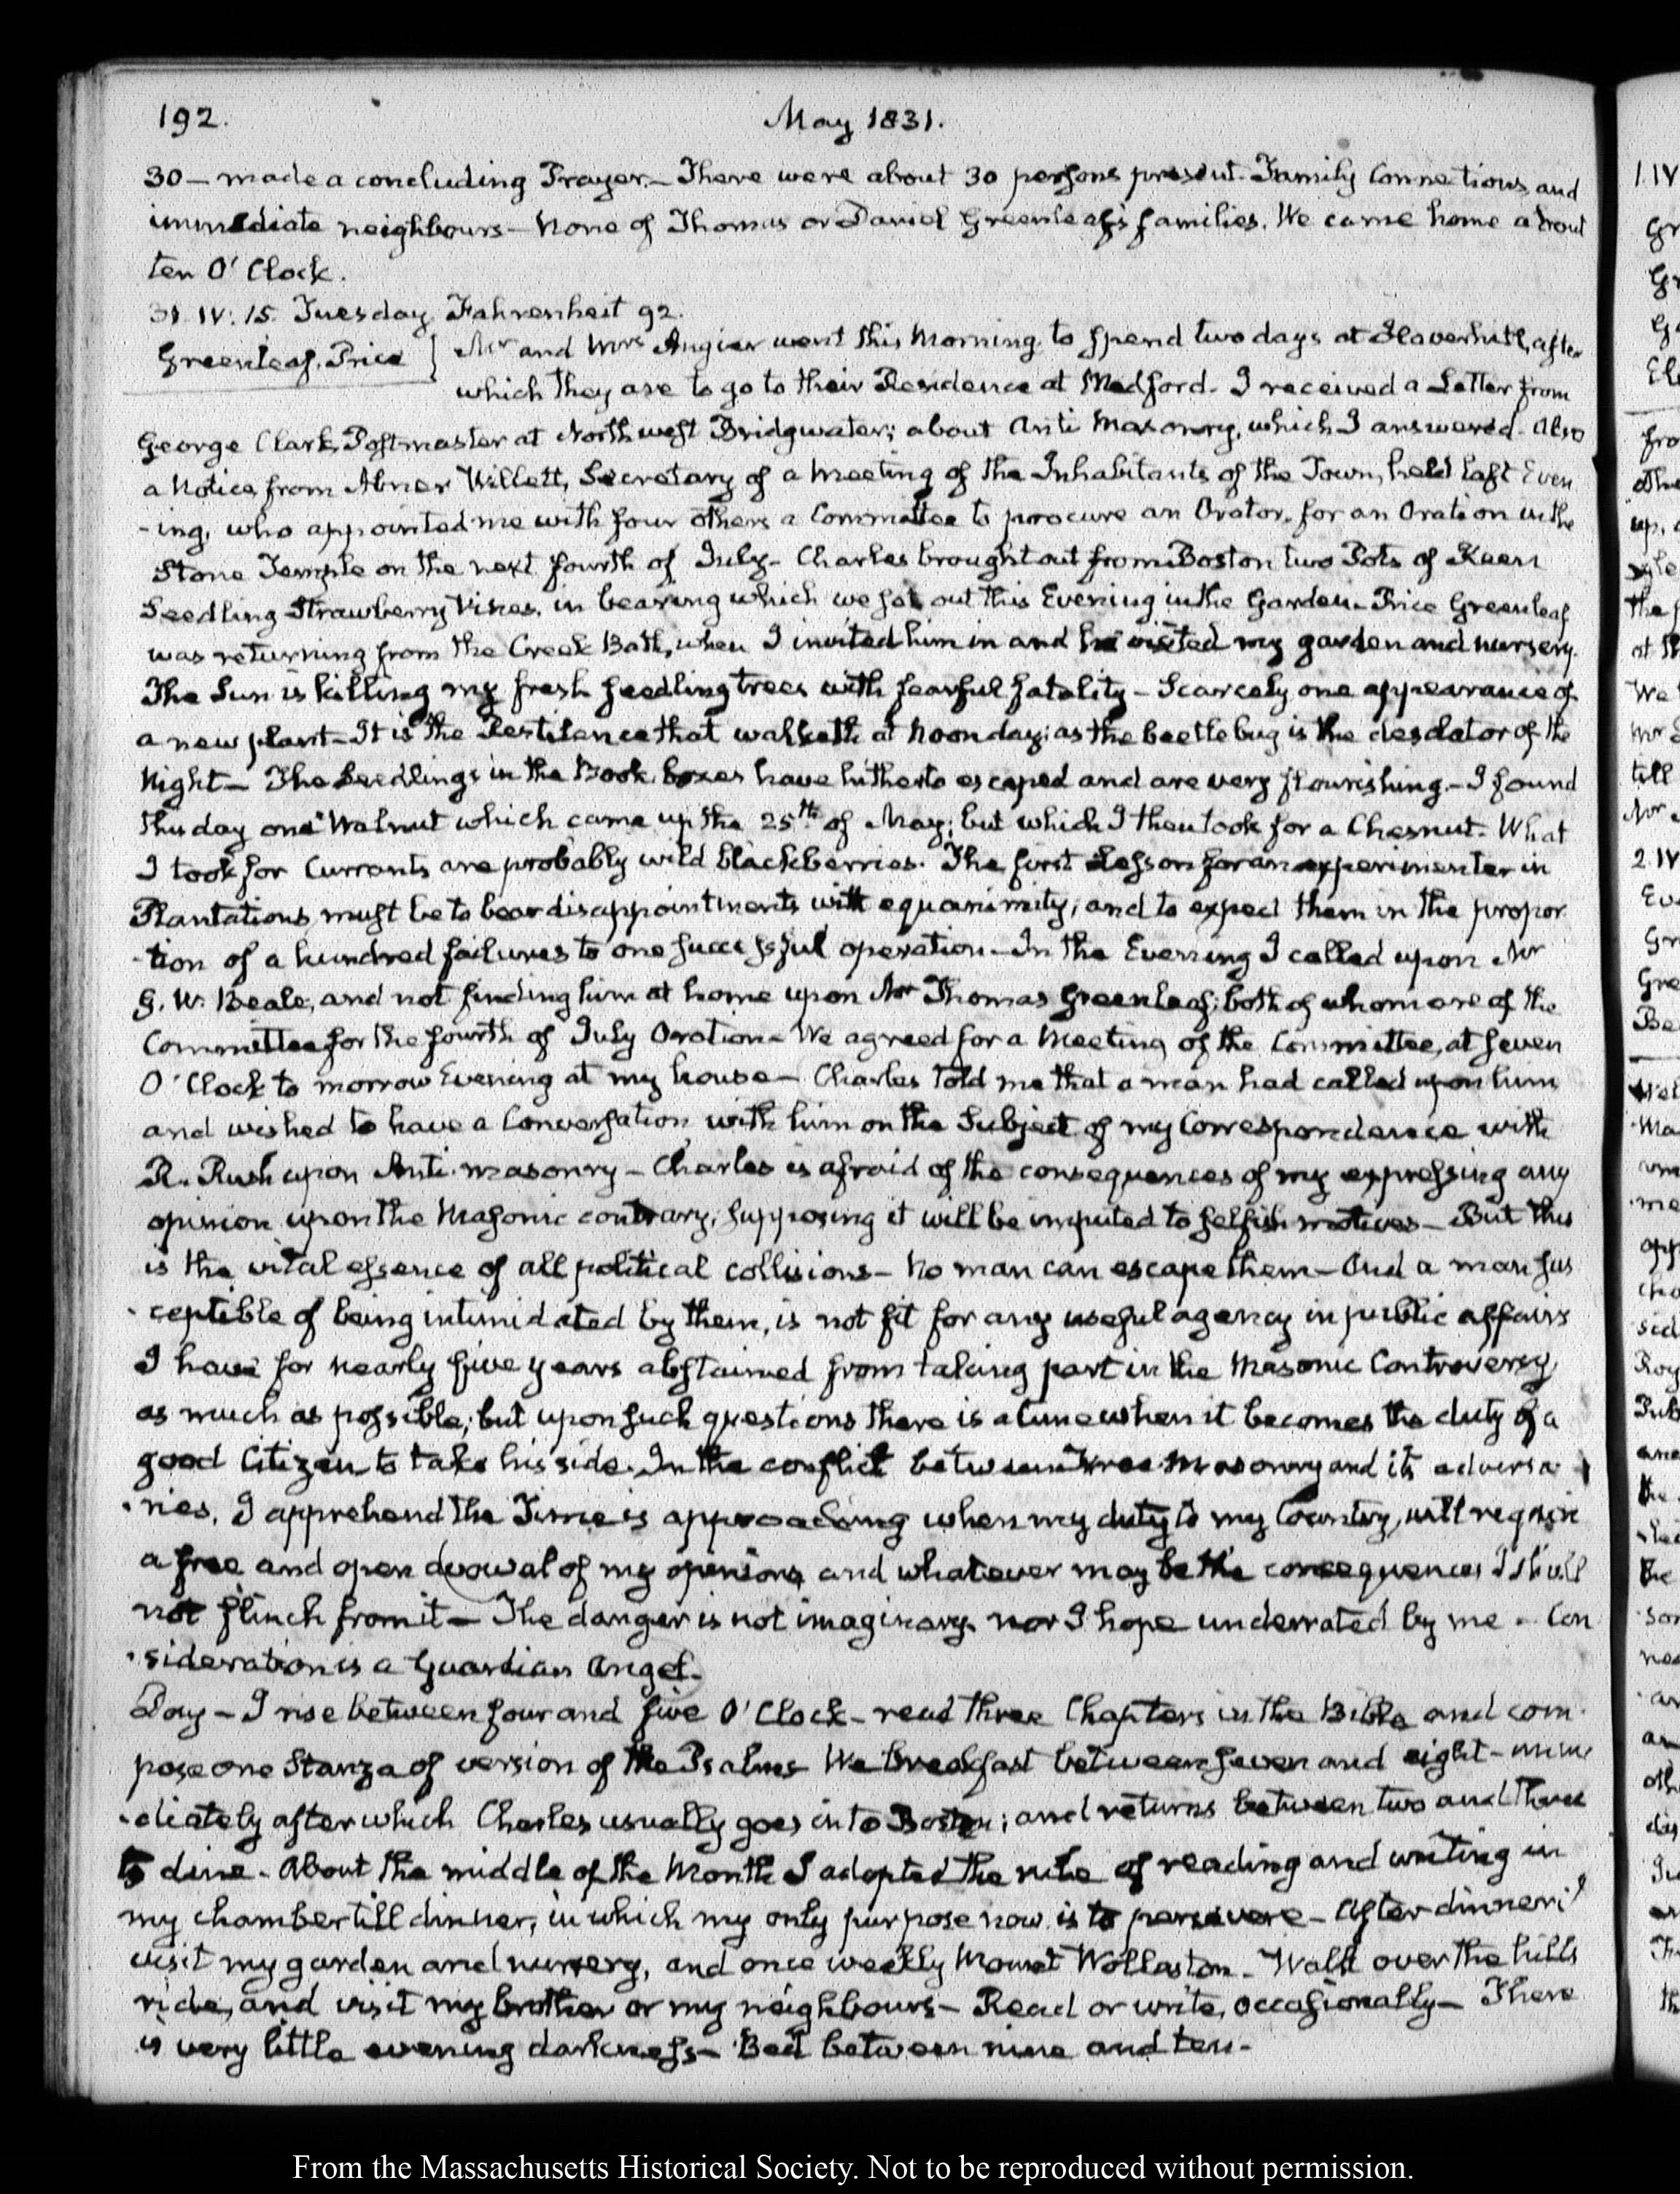 192.
May 1831.
30 — made a concluding Prayer. — There were about 30 persons present. Family Connections and
immediate neighbours — None of Thomas or Daniel Greenleaf's families. We came home about
ten O' Clock.
31. IV: 15. Tuesday. Fahrenheit 92.
Greenleaf. Price } Mr and Mrs Angier went this Morning, to spend two days at Haverhill, after
which they are to go to their Residence at Medford. I received a Letter from
George Clark, Postmaster at North west Bridgwater; about Anti Masonry, which I answered. Also
a Notice from Abner Willett, Secretary of a Meeting of the Inhabitants of the Town, held last Even
-ing, who appointed me with four others a Committee to procure an Orator, for an Oration in the
Stone Temple on the next fourth of July — Charles brought out from Boston two Pots of Keen
Seedling Strawberry Vines, in bearing which we set out this Evening in the Garden — Price Greenleaf
was returning from the Creek Bath, when I invited him in and he visited my garden and nursery.
The Sun is killing my fresh seedling trees with fearful fatality — Scarcely one appearance of
a new plant — It is the Pestilence that walketh at Noon day; as the beetle bug is the desolator of the
Night — The Seedlings in the Book boxes have hitherto escaped and are very flourishing. — I found
this day one Walnut which came up the 25th of May; but which I then took for a Chesnut. What
I took for Currants are probably wild blackberries. The first Lesson for an experimenter in
Plantations must be to bear disappointments with equanimity; and to expect them in the propor
-tion of a hundred failures to one successful operation — In the Evening I called upon Mr
G. W. Beale, and not finding him at home upon Mr Thomas Greenleaf; both of whom are of the
Committee for the fourth of July Oration — We agreed for a Meeting of the Committee, at seven
O' Clock to morrow Evening at my house — Charles told me that a man had called upon him
and wished to have a Conversation with him on the Subject of my Correspondence with
R. Rush upon Anti-masonry — Charles is afraid of the consequences of my expressing any
opinion upon the Masonic contrary, supposing it will be imputed to selfish motives — But this
is the vital essence of all political collisions — No man can escape them — And a man sus
-ceptible of being intimidated by them, is not fit for any useful agency in public affairs
I have for nearly five years abstained from taking part in the Masonic Controversy,
as much as possible; but upon such questions there is a time when it becomes the duty of a
good Citizen to take his side. In the conflict between Free Masonry and its adversa
-ries, I apprehend the Time is approaching when my duty to my Country, will require
a free and open avowal of my opinions, and whatever may be the consequences I shall
not flinch from it — The danger is not imaginary nor I hope underrated by me — Con
-sideration is a Guardian Angel.
Day — I rise between four and five O' Clock — read three Chapters in the Bible and com
pose one Stanza of version of the Psalms We breakfast between seven and eight — imme
-diately after which Charles usually goes into Boston; and returns between two and three
to dine — About the middle of the Month I adopted the rule of reading and writing in
my chamber till dinner; in which my only purpose now is to persevere — After dinner I
visit my garden and nursery, and once weekly Mount Wollaston — Walk over the hills
ride, and visit my brother or my neighbours — Read or write, occasionally — There
is very little evening darkness — Bed between nine and ten —
From the Massachusetts Historical Society. Not to be reproduced without permission.